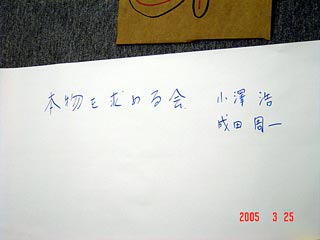 本物を求める会 小澤 浩
成田 周一
2005 3 25